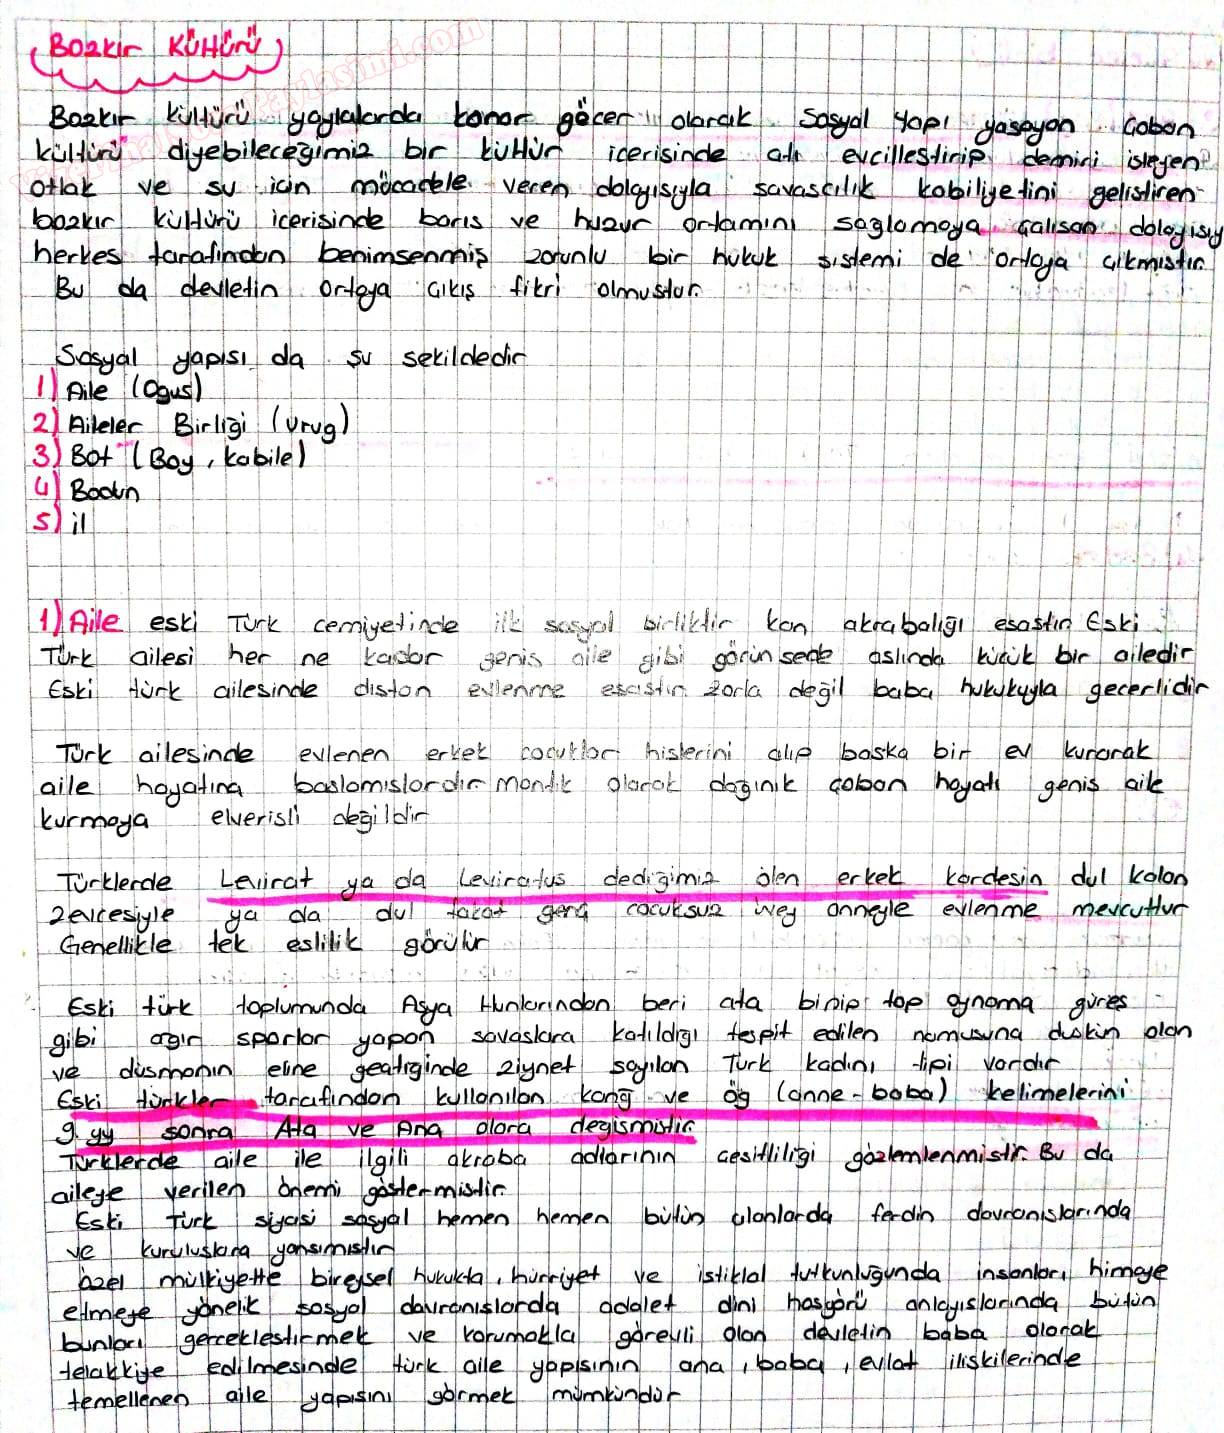 Bozkır Kültürü
Bozkır kültürü yaylalarda konar göçer olarak sosyal yapı yaşayan Çoban
kültürü diyebileceğimiz bir kültür içerisinde atı evcilleştirip demiri işleyen
otlak ve su için mücadele veren dolayısıyla savaşcılık kabiliyetini geliştiren
bozkır kültürü içerisinde barış ve huzur ortamını sağlamaya çalışan dolayısıy
herkes tarafından benimsenmiş zorunlu bir hukuk sistemi de ortaya çıkmıştır.
Bu da devletin ortaya çıkış fikri olmuştur.
Sosyal yapısı da şu şekildedir
1) Aile (Oguş)
2) Aileler Birliği (Urug)
3) Bot (Boy, kabile)
4) Bodun
5) il
1) Aile eski Türk cemiyetinde ilk sosyal birliktir kan akrabalığı esastır. Eski
Türk ailesi her ne kadar geniş aile gibi görünsede aslında küçük bir ailedir
Eski türk ailesinde dıştan evlenme esastır. Zorla değil baba hukukuyla geçerlidir
Türk ailesinde evlenen erkek çocuklar hislerini alıp başka bir ev kurarak
aile hayatına başlamışlardır mantık olarak dağınık çoban hayatı geniş aile
kurmaya elverişli değildir
Türklerde Levirat ya da Leviratus dediğimiz ölen erkek kardeşin dul kalan
zevcesiyle ya da dul fakat genç çocuksuz üvey anneyle evlenme mevcuttur
Genellikle tek eşlilik görülür
Eski türk toplumunda Asya Hunlarından beri ata binip top oynama güreş
gibi ağır sporlar yapan savaşlara katıldığı tespit edilen namusuna düşkün olan
ve düşmanın eline geçtiğinde ziynet sayılan Türk kadını tipi vardır
Eski türkler tarafından kullanılan kang ve ög (anne-baba) kelimelerini
9.yy sonra Ata ve Ana olara değişmiştir.
Türklerde aile ile ilgili akraba adlarının çeşitliliği gözlemlenmiştir. Bu da
aileye verilen önemi göstermiştir.
Eski Türk siyasi sosyal hemen hemen bütün alanlarda ferdin davranışlarında
ve kuruluşlara yansımıştır
özel mülkiyette bireysel hukukta, hürriyet ve istiklal tutkunluğunda insanları himaye
etmeye yönelik sosyal davranışlarda adalet dini hoşgörü anlayışlarında bütün
bunları gerçekleştirmek ve korumakla görevli olan devletin baba olarak
telakkiye edilmesinde türk aile yapısının ana, baba, evlat ilişkilerinde
temellenen aile yapısını görmek mümkündür